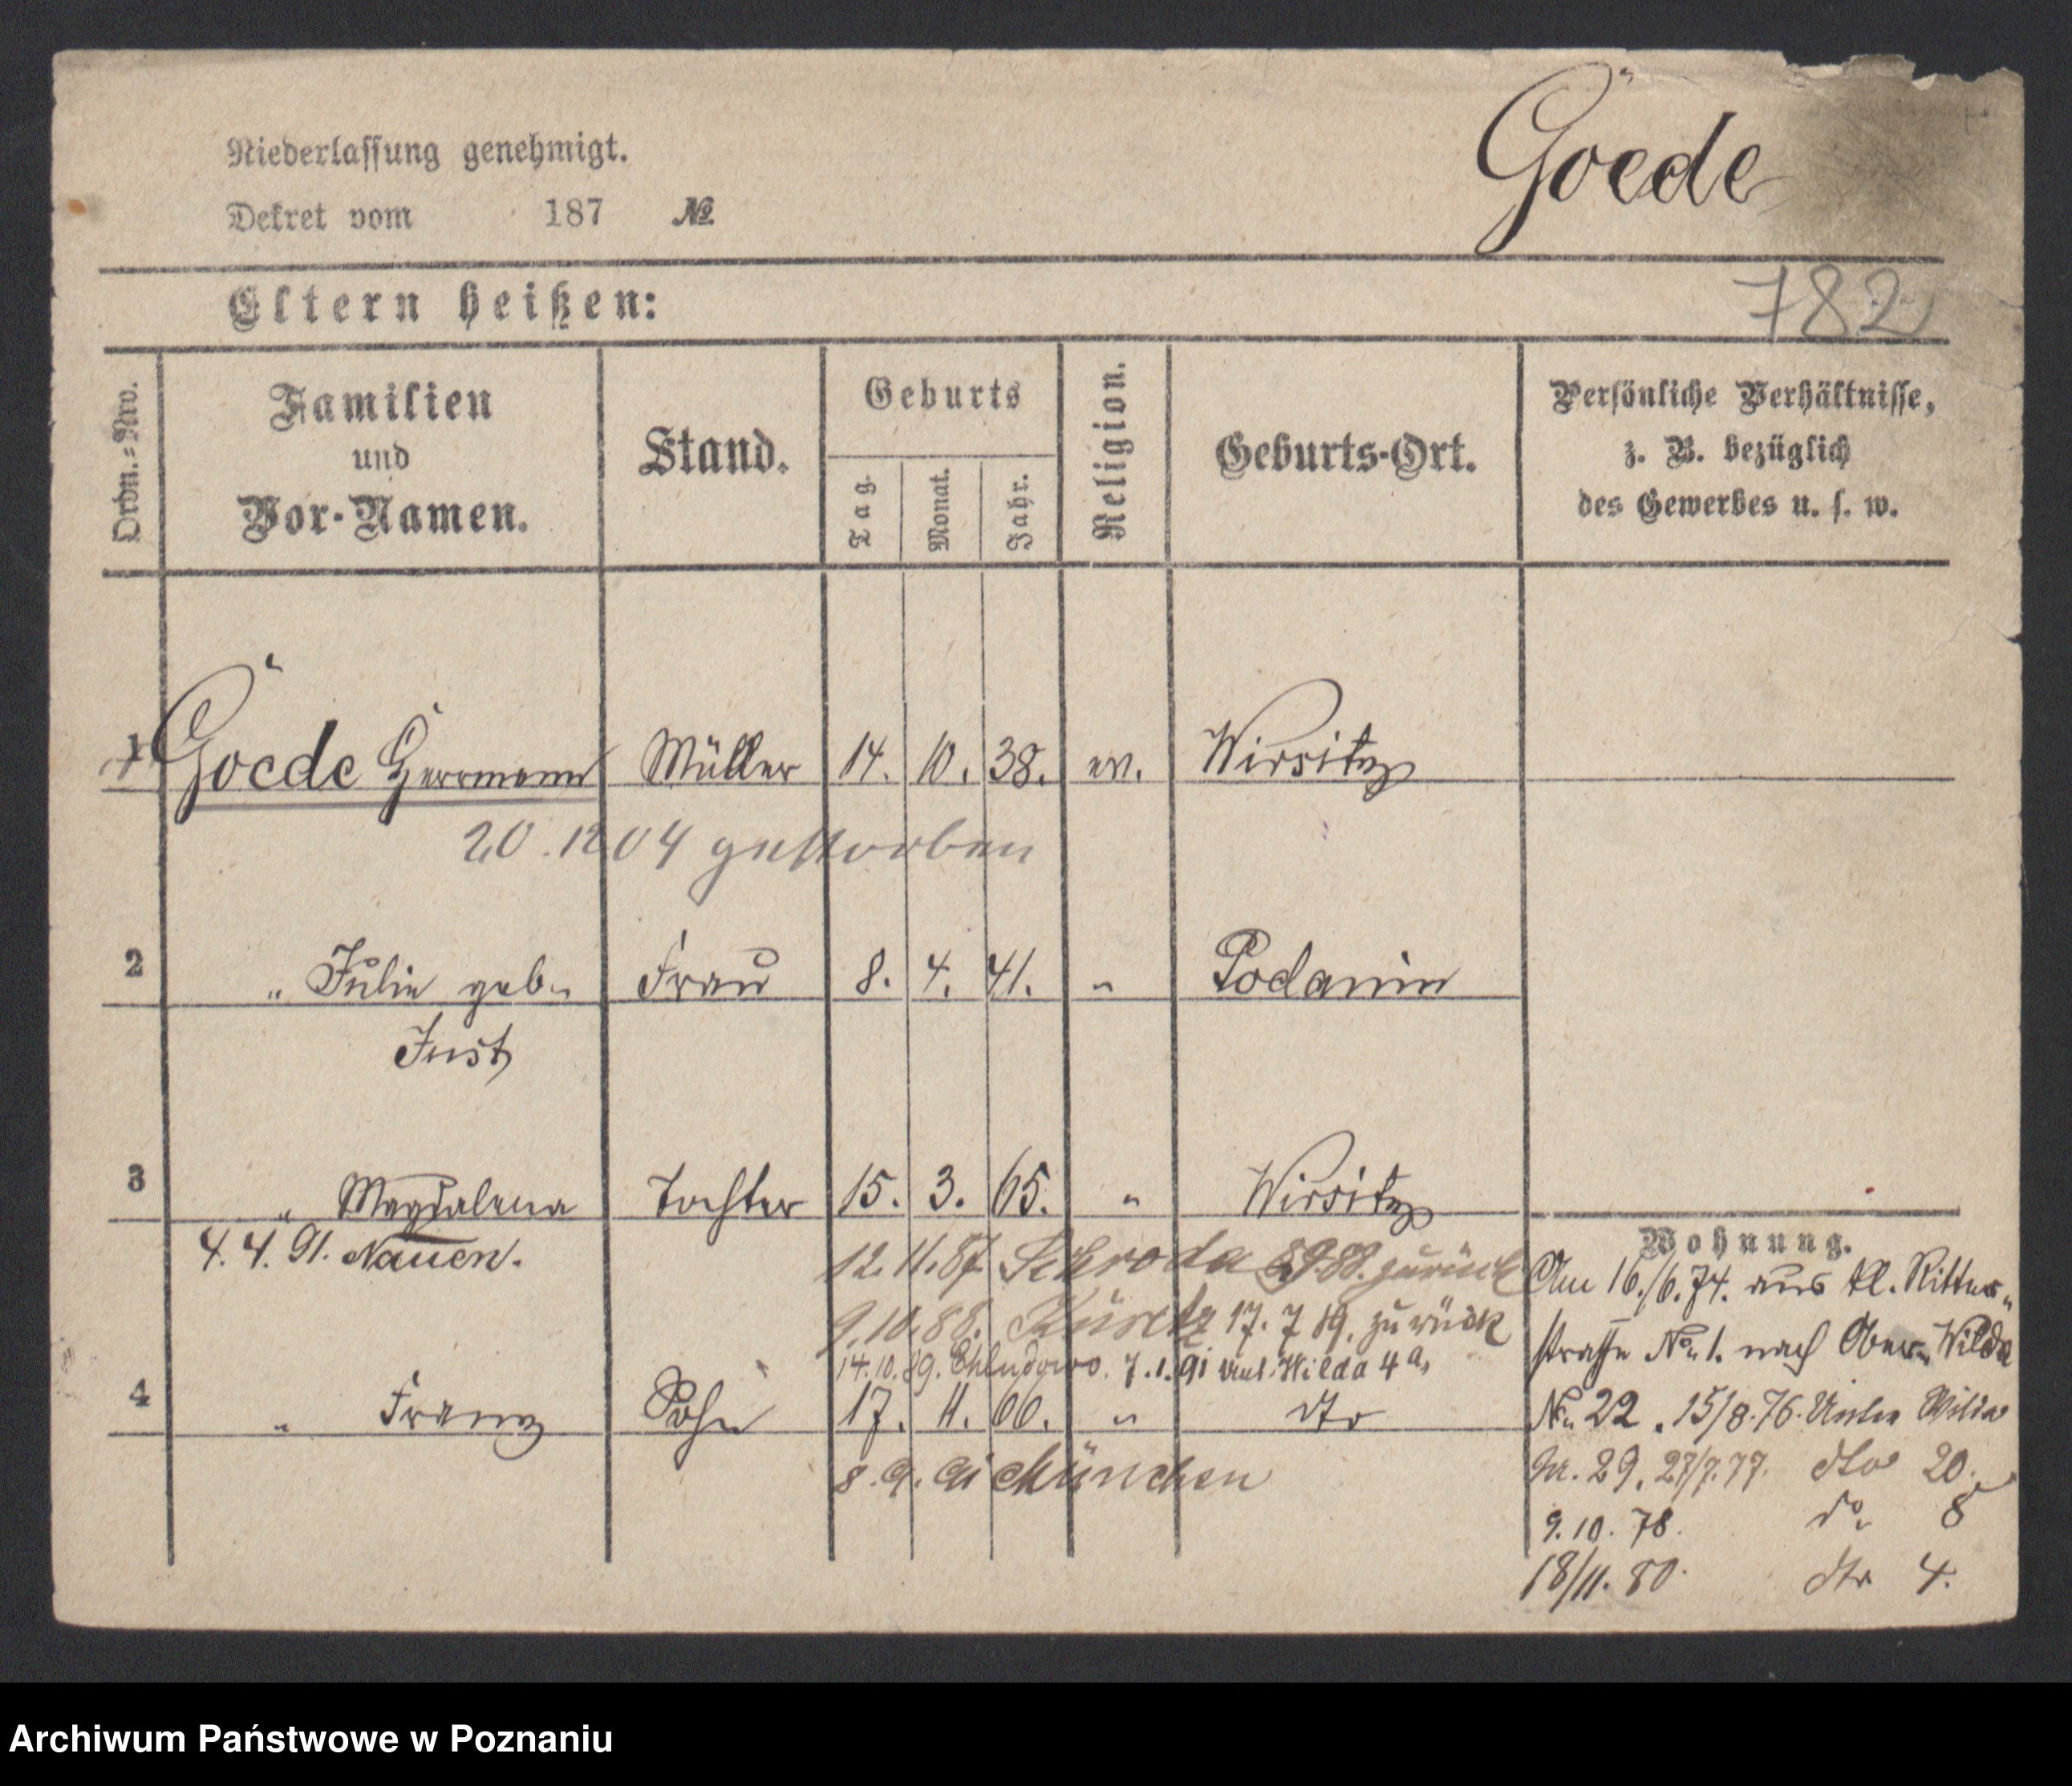 Goede
Niederlassung genehmigt.
Dekret vom 187 №
782
Eltern heißen:
Ordn.-Nro. Familien und Vor-Namen. Stand. Geburts Tag. Monat. Jahr. Religion. Geburts-Ort. Persönliche Verhältnisse, z. B. bezüglich des Gewerbes u. s. w.
1 Goede Herrmann Müller 14. 10. 38. ev. Wirsitz
20.12 04 gestorben
2 " Julie geb. Frau 8. 4. 41. " Podanin
Just
3 " Magdalena Tochter 15. 3. 65. " Wirsitz
4.4.91. Nauen.
12.11.87 Schroda zurück
9.10.88. 17.7 89. zurück
14.10.89. Chludowo. 7.1.91 Unt. Wilda 4a,
4 " Franz Sohn 17. 11. 66. " dto
8.9.91 München
Wohnung.
Am 16./6.74. aus kl. Ritter-
straße No 1. nach Ober-Wilda
No 22. 15/8.76. Unter Wilda
Nr. 29. 27/7.77. dto 20.
9.10.78. do 8
18/11.80. dto 4.
Archiwum Państwowe w Poznaniu